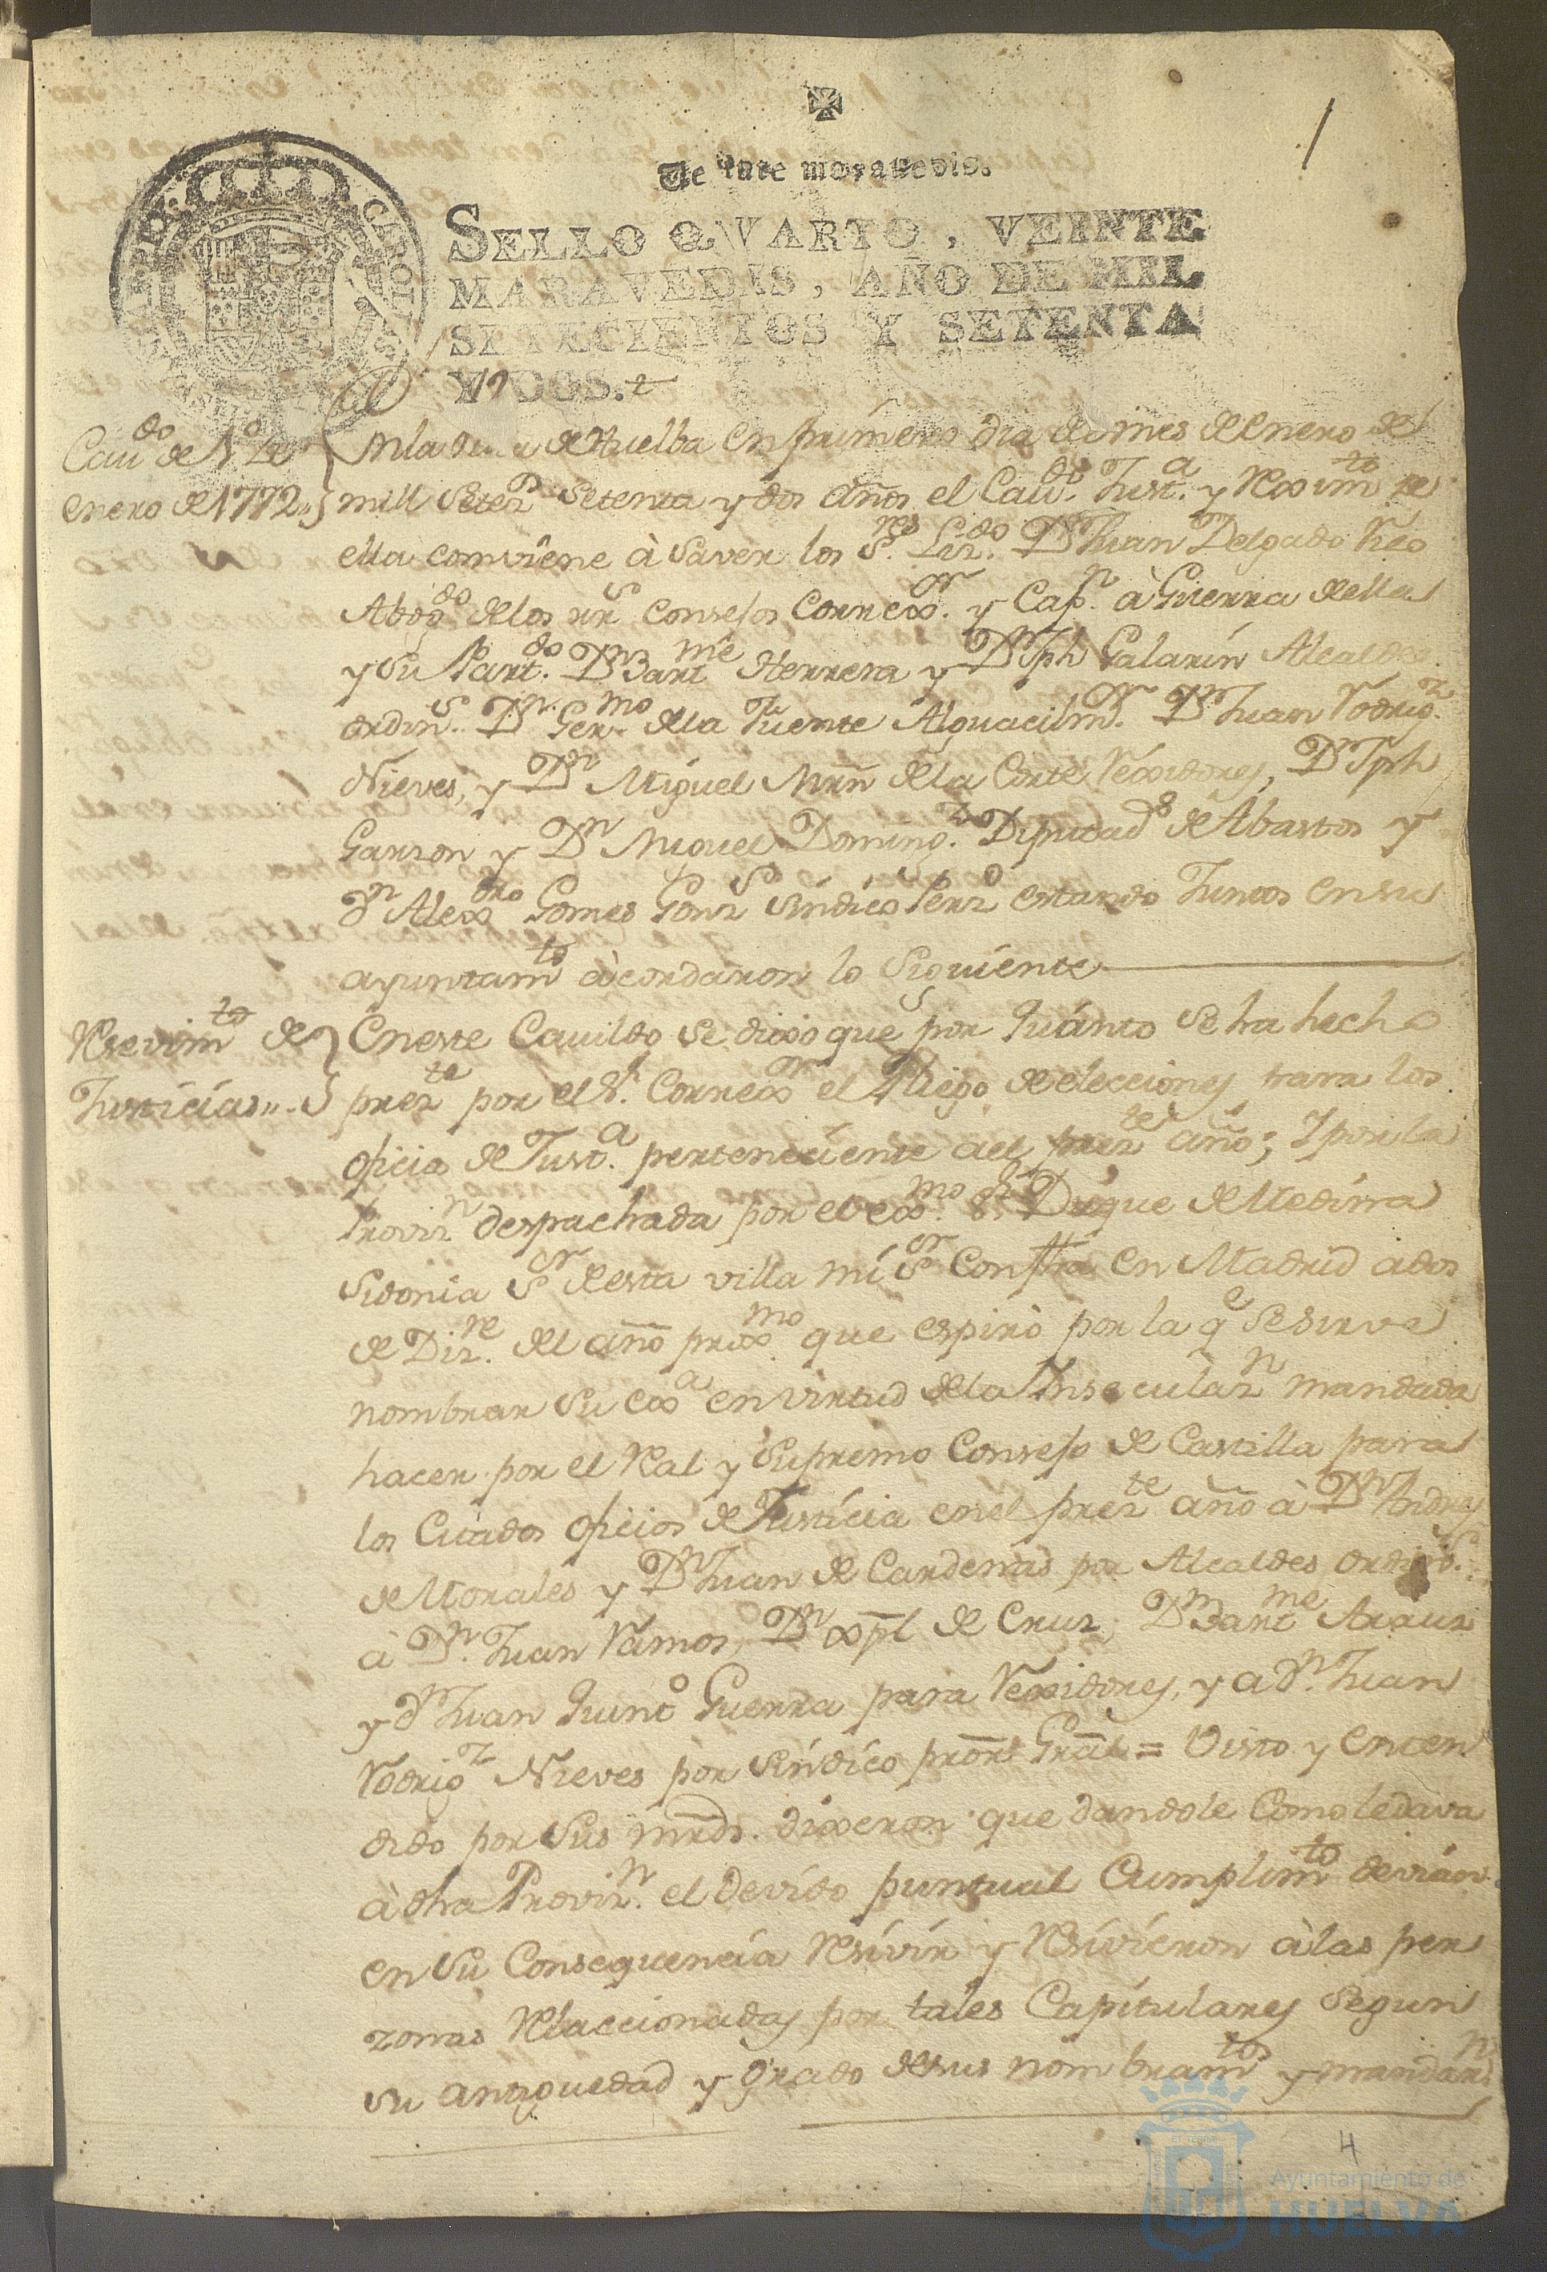 1
Veinte maravedis.
SELLO QVARTO, VEINTE
MARAVEDIS, AÑO DE MIL
SETECIENTOS Y SETENTA
Y DOS.
CAROLUS
Caudo de 1º de
enero de 1772„
En la Villa de Huelba en primero dia del mes de enero de
mill setezs setenta y dos años el Caudo Justa y Reximto de
ella comviene à saver los Sres Lizdo Dn Juan Delgado Rico
Abogdo de los rrs consejos Correxor y Capn à Guerra de ella
y su Partdo Dn Bartme Herrera y Dn Jph Galarín Alcaldes
ordins Dn Germo de la Fuente Alguacil mor Dn Juan Rodrigz
Nieves, y Dn Miguel Mrñ de la Corte Rexidores, Dn Jph
Garzon y Dn Miguel Domingz Diputads de Abastos y
Dn Alexdro Gomes Gonz Sindico Perzo estando Juntos en su
ayuntamto àcordaron lo siguiente
Resevimto de
Justicias„
En este Cavildo se dixo que por quánto se ha hecho
prezte por el Sr Correxor el Pliego de elecciones para los
oficios de Justa perteneciente a el prezte año; Y por la
Provizn despachada por el exmo Sr Duque de Medina
Sidonia Sor de esta villa mi Sor con fha en Madrid a dos
de Dizre del año proxmo que espiró por la qe se sirve
nombrar su exa en virtud de la Insecularn mandada
hacer por el Real y Supremo Consejo de Castilla para
los Citados oficios de Justicia en el prezte año à Dn Andres
de Morales y Dn Juan de Cardenas por Alcaldes ordins
à Dn Juan Ramos, Dn Xpl de Cruz, Dn Bartme Arauz
y Dn Juan Quinto Guerra para Rexidores, y a Dn Juan
Rodrigz Nieves por sindico pror Gral = Visto y enten
dido por sus mrds dixeron que dandole como le dava
à dha Provizn el devido puntual Cumplimto devian
en su Consequencia Resivir y Resivieron à las per
zonas Relaccionadas por tales Capitulares segun
su antiguedad y grado de sus nombramtos y mandarn
4
Ayuntamiento de
HUELVA